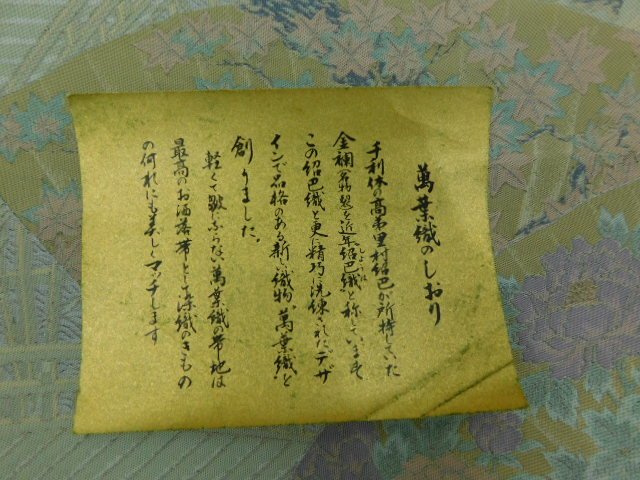 萬葉織のしおり
千利休の高弟里村紹巴が所持していた
金襴 を近年紹巴織と称していますが
しょうは
この紹巴織を更に精巧に洗練されたデザ
インで品格のある新しい織物"萬葉織"を
創りました。
軽くて皺にならない萬葉織の帯地は
最高のお洒落帯として染織のきもの
の何れにも美しくマッチします